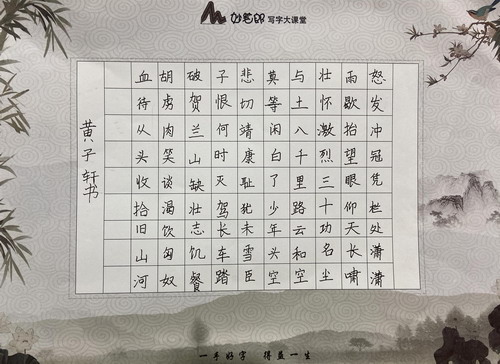 妙笔郎 写字大课堂
怒发冲冠凭栏处潇潇
雨歇抬望眼仰天长啸
壮怀激烈三十功名尘
与土八千里路云和空
莫等闲白了少年头空
悲切靖康耻犹未雪臣
子恨何时灭驾长车踏
破贺兰山缺壮志饥餐
胡虏肉笑谈渴饮匈奴
血待从头收拾旧山河
黄子轩书
一手好字 得益一生